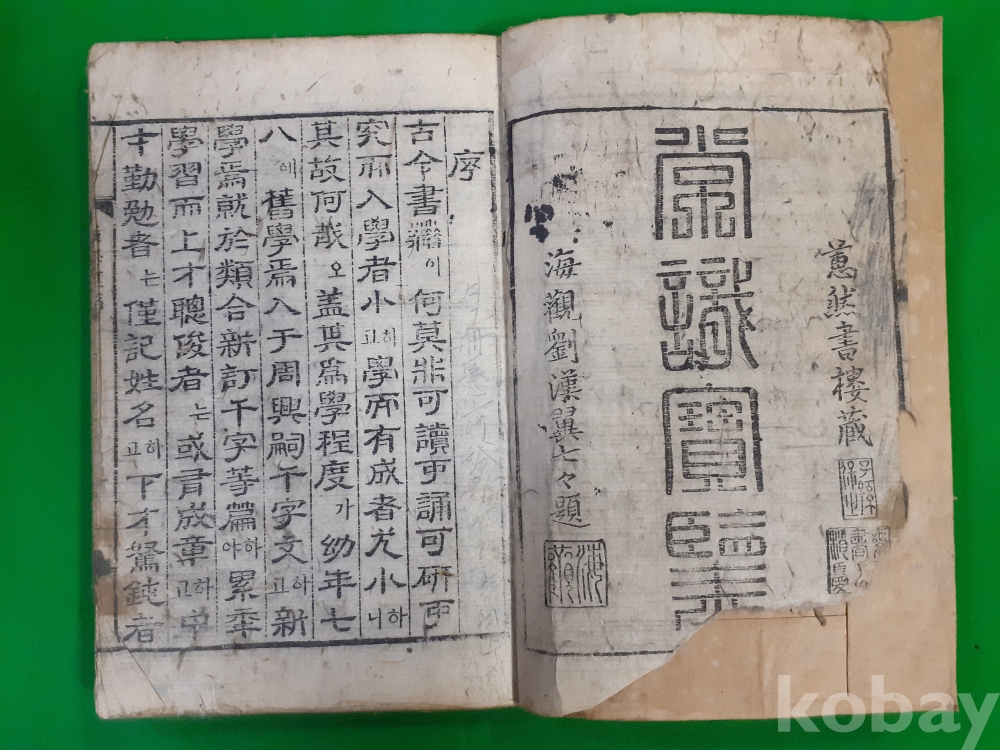 然書樓藏
常識寶鑑
海觀劉漢翼七々題
序
古今書籍이何莫非可讀可誦可研可
究而入學者小하고學而有成者尤小하니
其故何哉오盖其爲學程度가幼年七
八에舊學焉入于周興嗣千字文하고新
學焉就於類合新訂千字等篇하야累年
學習而上才聰俊者는或有成章하고中
才勤勉者는僅記姓名하고下才駑鈍者
kobay